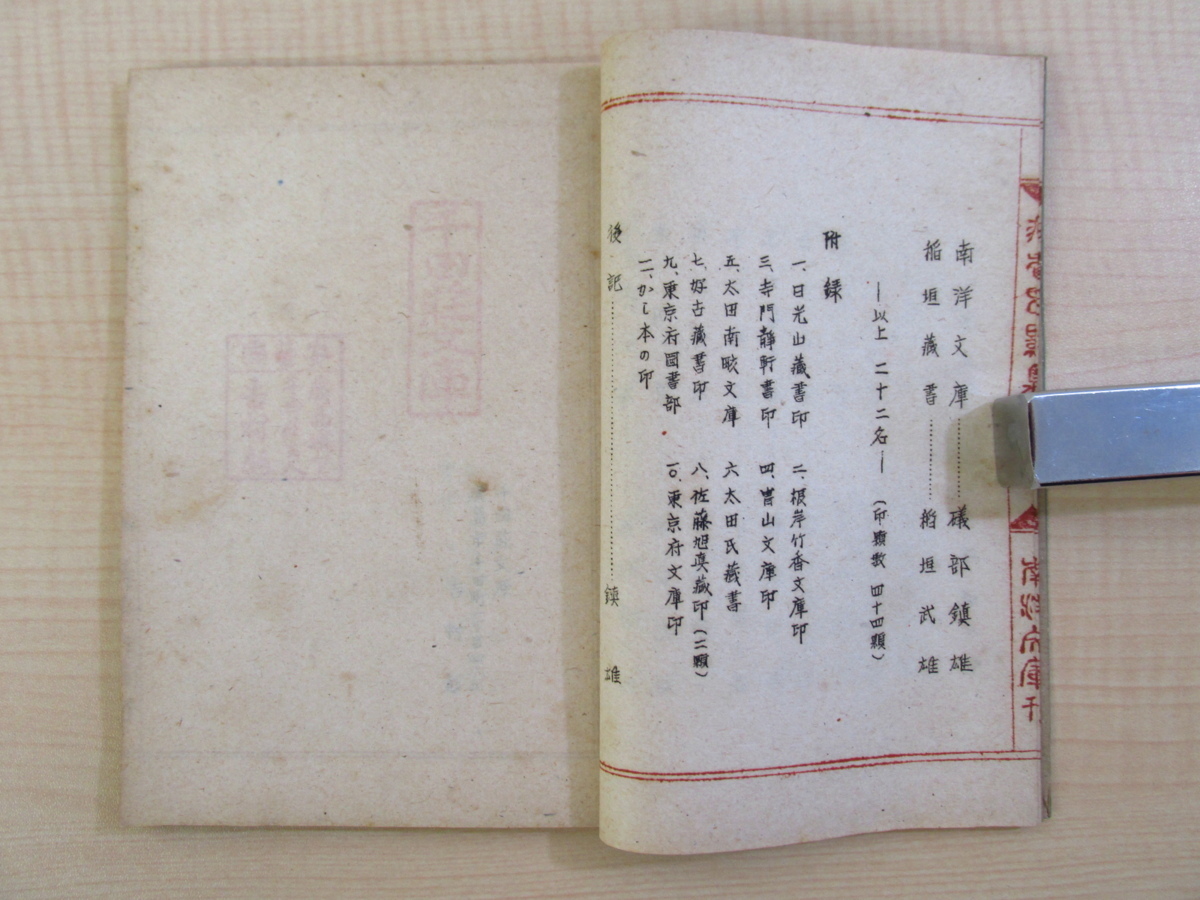 南洋文庫…………礒部鎮雄
稲垣蔵書…………稲垣武雄
―以上 二十二名― (印顆数 四十四顆)
附録
一、日光山蔵書印 二、根岸竹香文庫印
三、寺門静軒書印 四、曺山文庫印
五、太田南畝文庫 六、太田氏蔵書
七、好古蔵書印 八、佐藤旭真蔵印(二顆)
九、東京府図書部 一〇、東京府文庫印
一一、かし本の印
後記…………鎮雄
南洋文庫刊